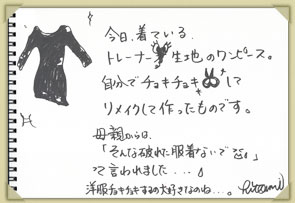 今日、着ている
トレーナー生地のワンピース。
自分でチョキチョキして
リメイクして作ったものです。
母親からは、
「そんな破れた服着ないで」
って言われました・・・。
洋服チョキチョキするの大好きなのね…。
Hitomi